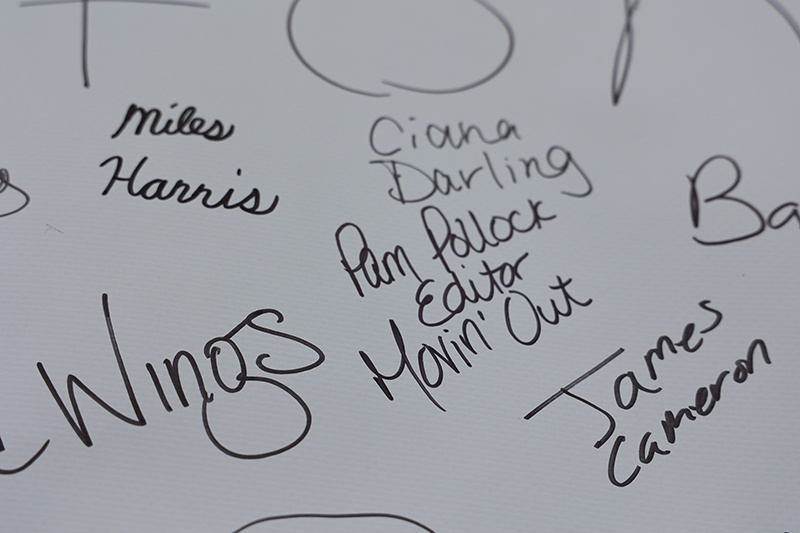 Miles
Harris
Ciana
Darling
Pam Pollock
Editor
Movin' Out
Wings
James
Cameron